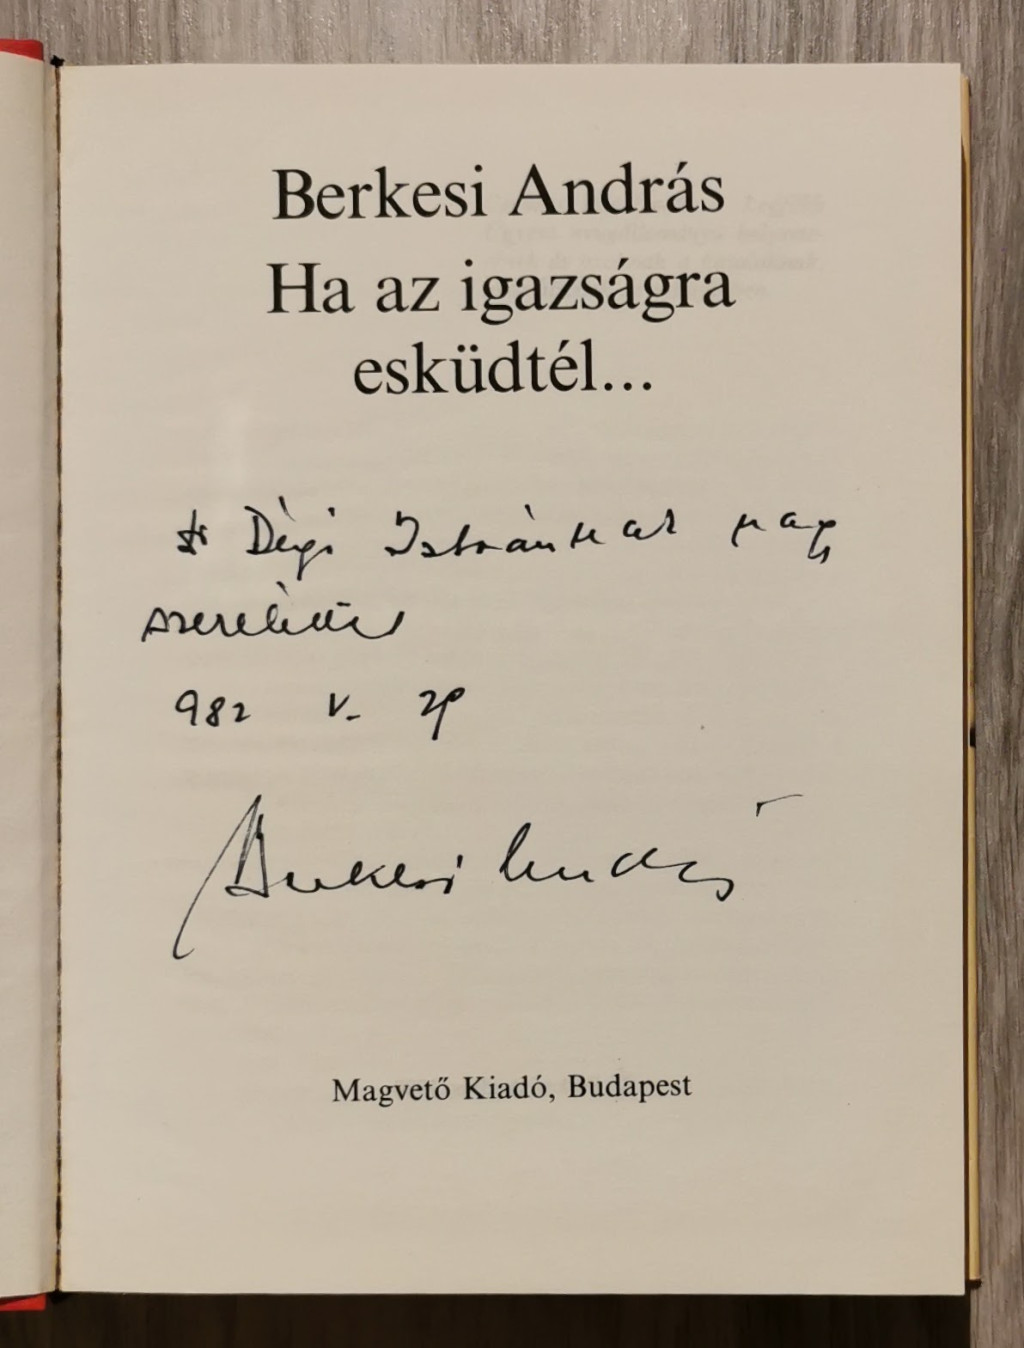 Berkesi András
Ha az igazságra
esküdtél...
dr Dégi Istvánnak nagy
szeretettel
982 V. 28
Berkesi András
Magvető Kiadó, Budapest